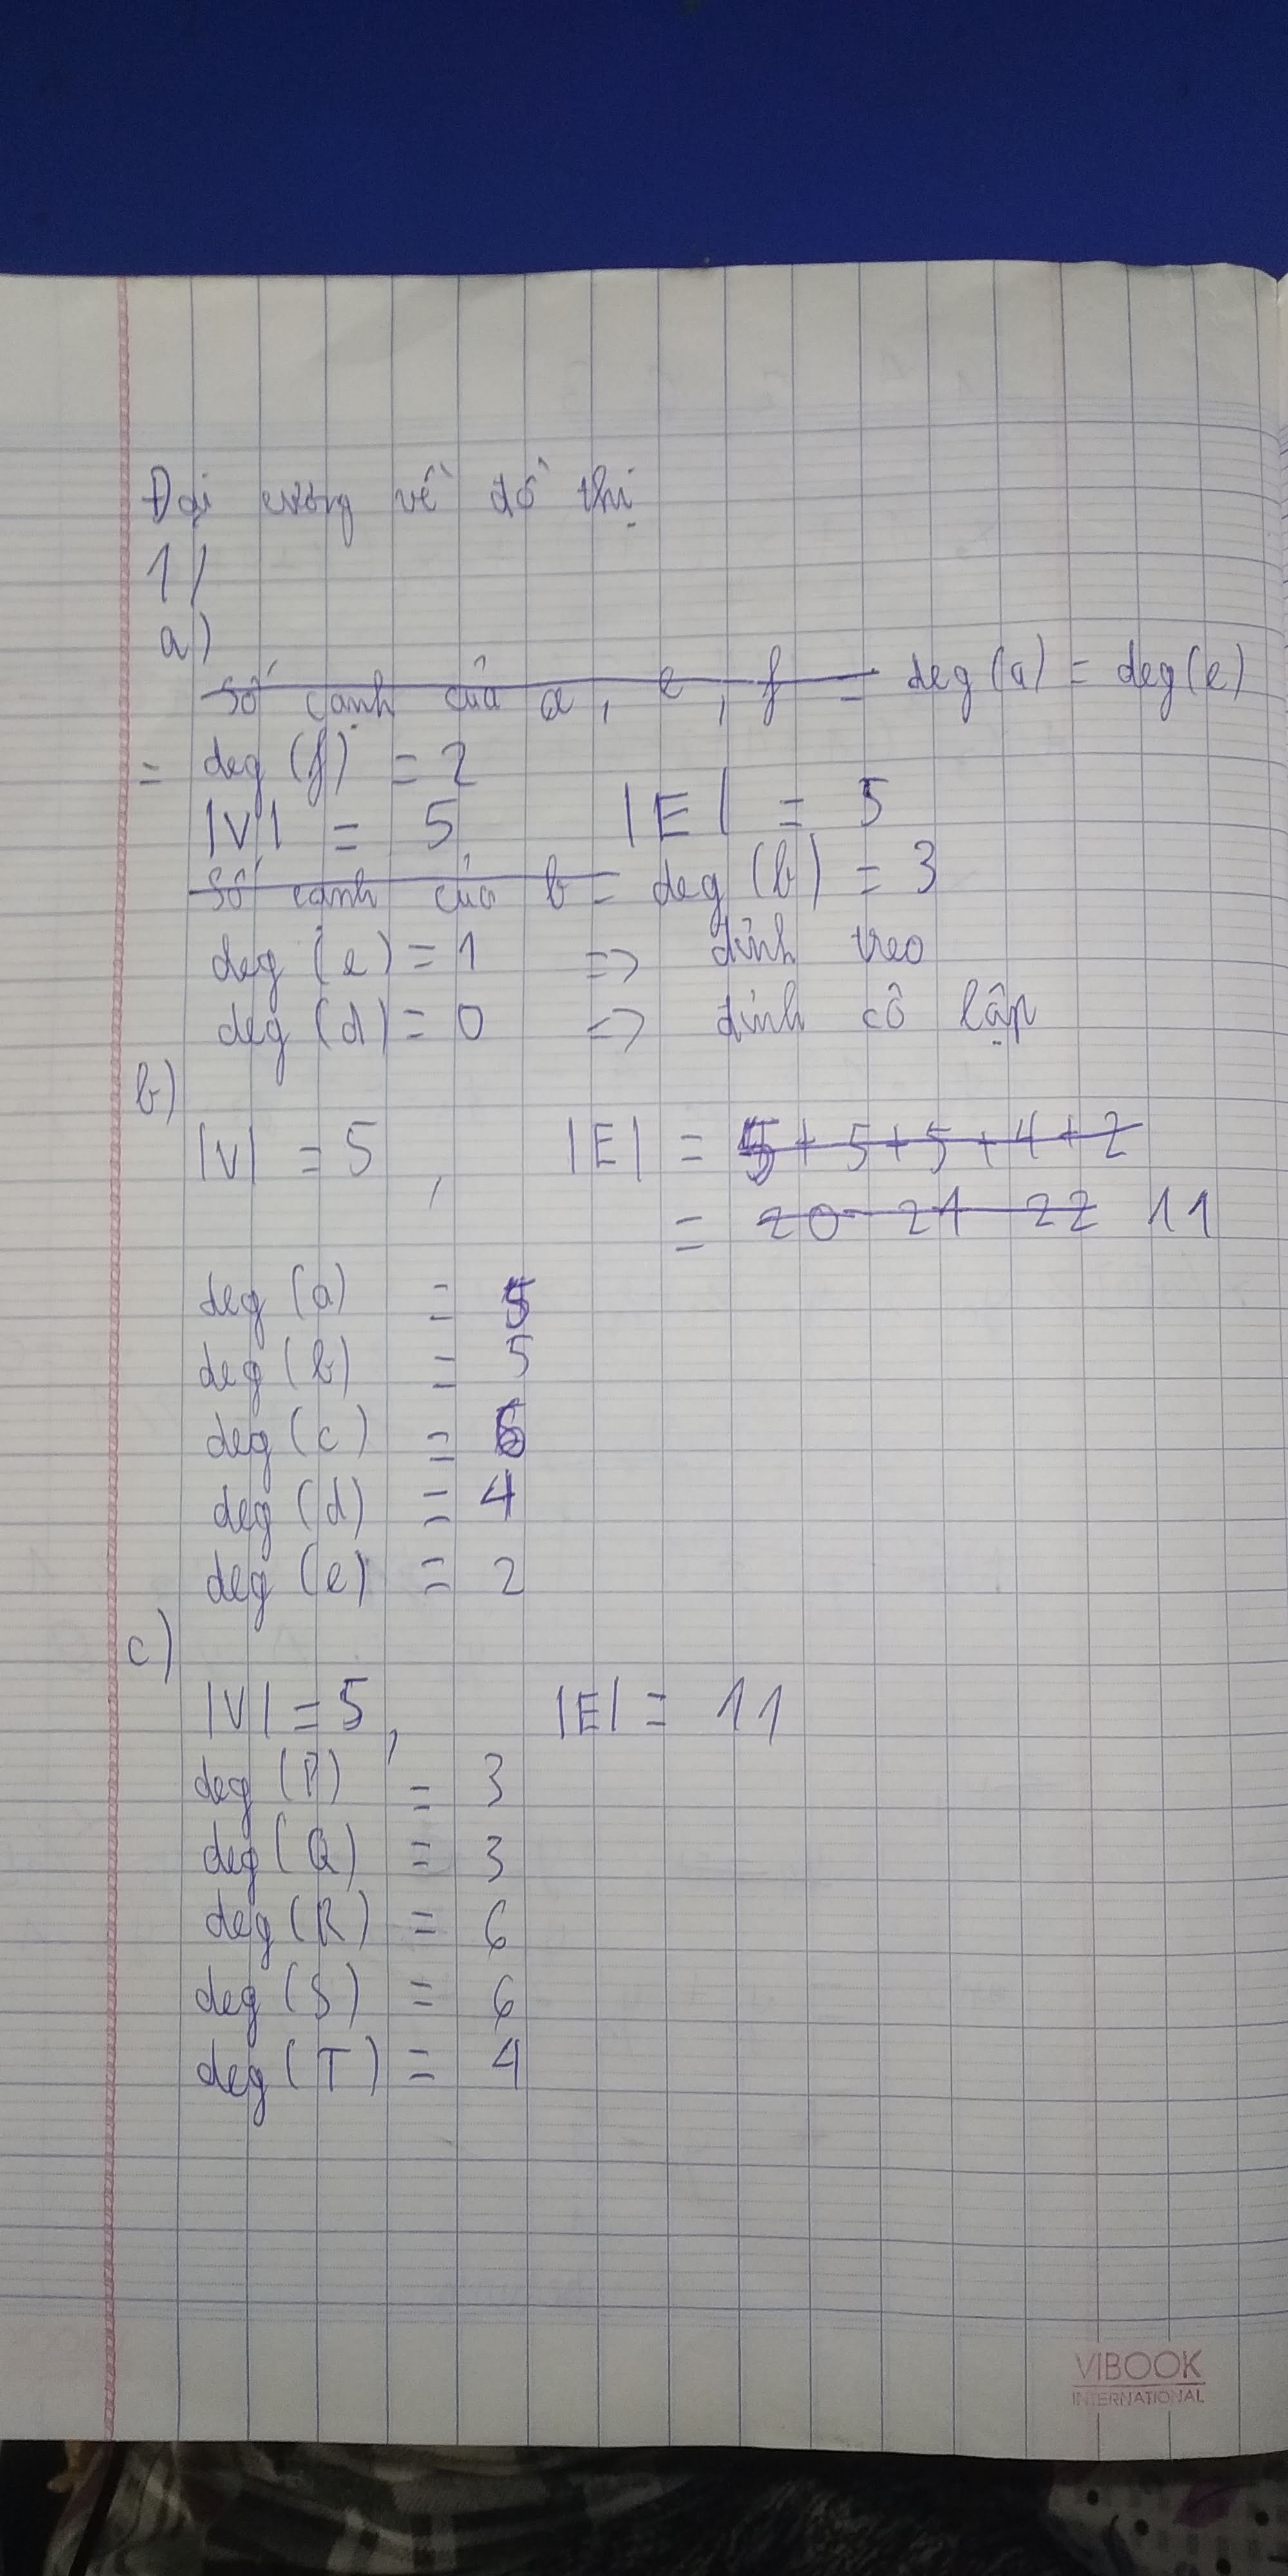 Đại cương về đồ thị
1/
a)
Số cạnh của a, e, f = deg(a) = deg(e)
= deg(f) = 2
|V| = 5 |E| = 5
Số cạnh của b = deg(b) = 3
deg(e) = 1 => đỉnh treo
deg(d) = 0 => đỉnh cô lập
b)
|V| = 5, |E| = 5 + 5 + 5 + 4 + 2
= 20 21 22 11
deg(a) =
deg(b) = 5
deg(c) =
deg(d) = 4
deg(e) = 2
c)
|V| = 5, |E| = 11
deg(P) = 3
deg(Q) = 3
deg(R) = 6
deg(S) = 6
deg(T) = 4
VIBOOK
INTERNATIONAL